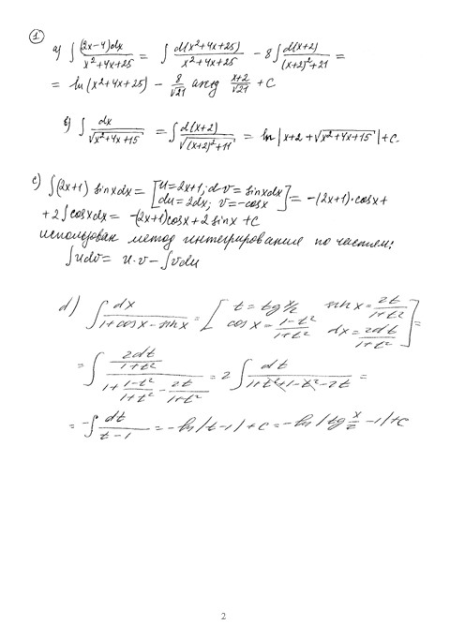 ①
a) ∫ (2x-4)dx / x²+4x+25 = ∫ d(x²+4x+25) / x²+4x+25 - 8∫ d(x+2) / (x+2)²+21 =
= ln(x²+4x+25) - 8/√21 arctg x+2/√21 + C
б) ∫ dx / √x²+4x+15 = ∫ d(x+2) / √(x+2)²+11 = ln|x+2+√x²+4x+15|+C.
c) ∫(2x+1) sinxdx = [u=2x+1; dv=sinxdx du=2dx; v=-cosx] = -(2x+1)·cosx+
+2∫cosxdx = -(2x+1)cosx+2 sinx +C
использован метод интегрирования по частям:
∫udv = u·v - ∫vdu
d) ∫ dx / 1+cosx-sinx = [t=tg x/2 sinx = 2t / 1+t² cosx = 1-t² / 1+t² dx = 2dt / 1+t²] =
= ∫ 2dt / 1+t² / 1+ 1-t² / 1+t² - 2t / 1+t² = 2∫ dt / 1+t²+1-t²-2t =
= -∫ dt / t-1 = -ln|t-1|+C = -ln|tg x/2 -1|+C
2